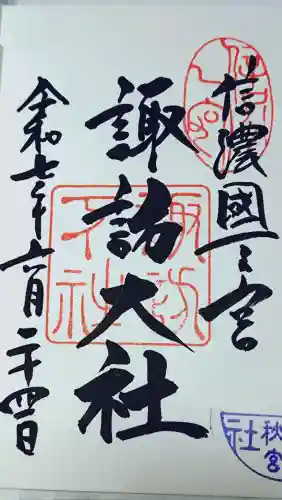 信濃國一之宮
諏訪大社
令和七年六月二十四日
諏訪大社
秋宮
社